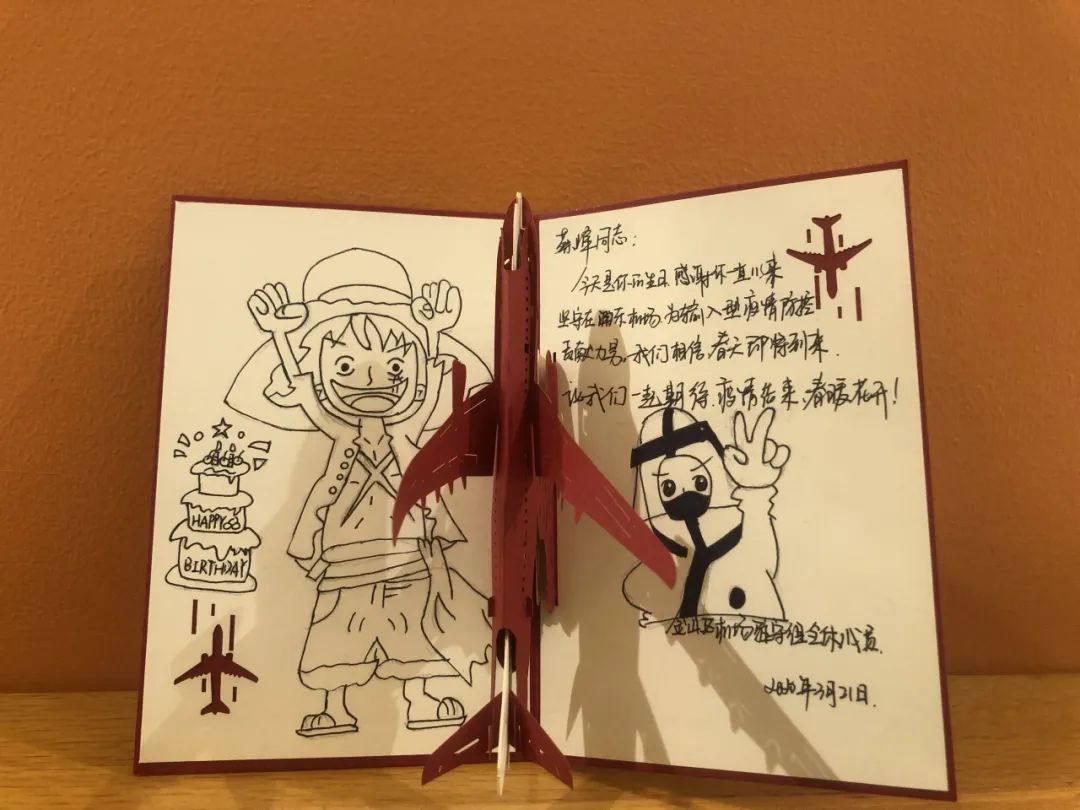 HAPPY
BIRTHDAY
同志：
今天是你的生日，感谢你一直以来
坚守在浦东机场，为输入型疫情防控
贡献力量，我们相信，春天即将到来.
让我们一起期待，疫情结束，春暖花开！
金山区机场驻守组全体成员.
2020年3月21日.